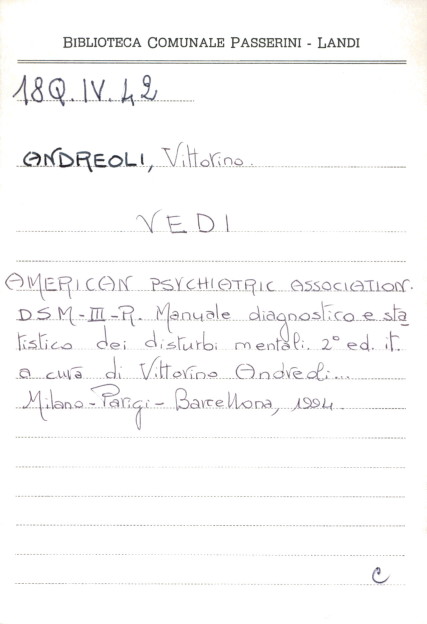 BIBLIOTECA COMUNALE PASSERINI - LANDI
18Q.IV.42
ANDREOLI, Vittorino.
VEDI
AMERICAN PSYCHIATRIC ASSOCIATION.
DSM-III-R. Manuale diagnostico e sta
tistico dei disturbi mentali. 2° ed. it.
a cura di Vittorino Andreoli...
Milano - Parigi - Barcellona, 1994.
C